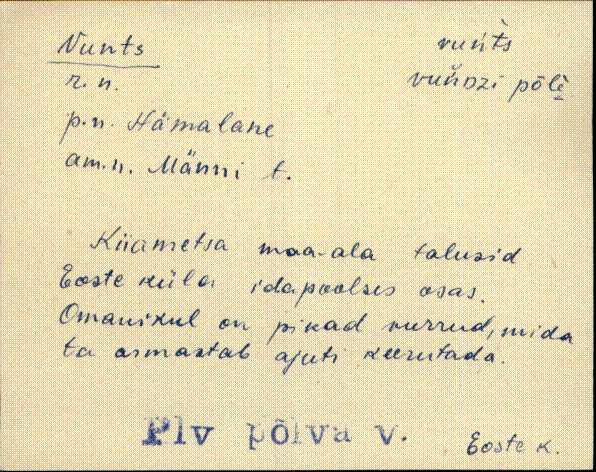 Vunts
vuǹt̀s
r.n.
vuňDzi põlè̬
p.n. Hämalane
am.n. Männi t.
Kiiametsa maa-ala talusid
Eoste küla idapoolses osas.
Omanikul on pikad vurrud, mida
ta armastab ajuti keerutada.
Plv põlva v.
Eoste k.